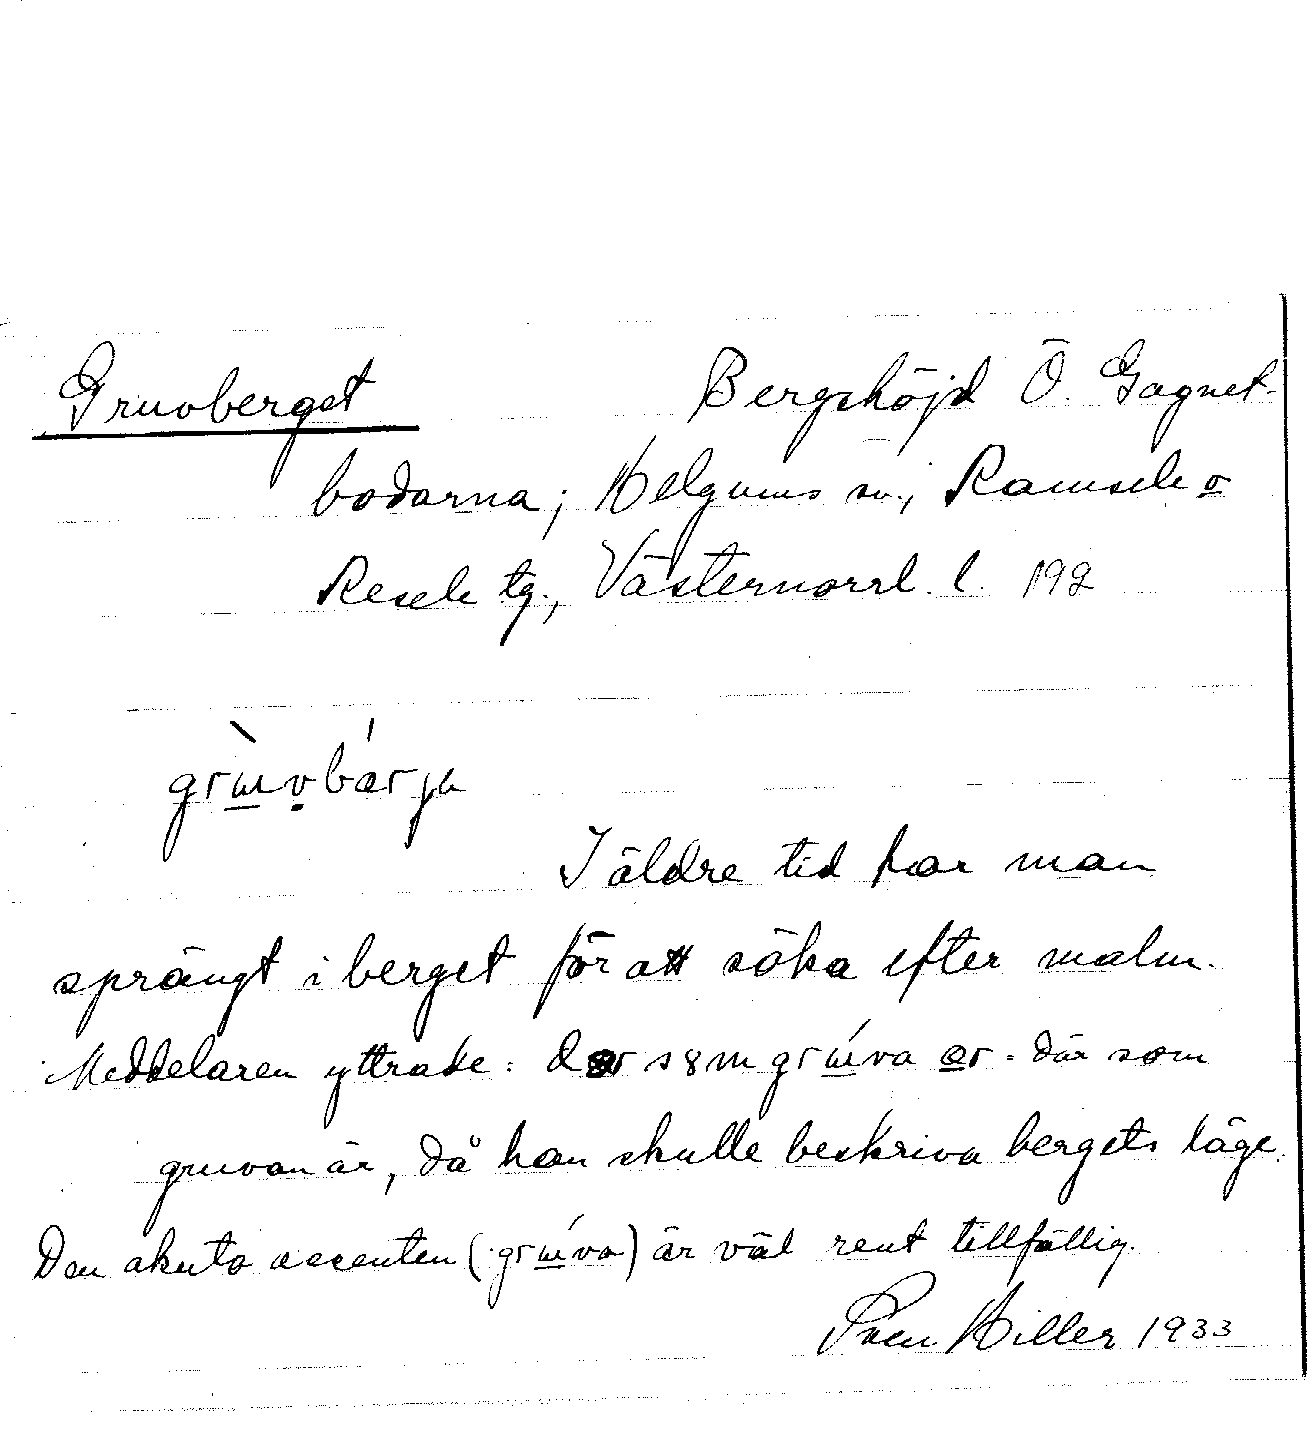 Gruvberget Bergshöjd Ö. Gagnet-
bodarna; Helgums sn.; Ramsele o
Resele tg., Västernorrl. l. 192
grɯ̀vbǽrjɑ
I äldre tid har man
sprängt i berget för att söka efter malm.
Meddelaren yttrade: dær s8m grɯ́va ær = där som
gruvan är, då han skulle beskriva bergets läge.
Den akuta accenten (grɯ́va) är väl rent tillfällig.
Sven Hiller 1933